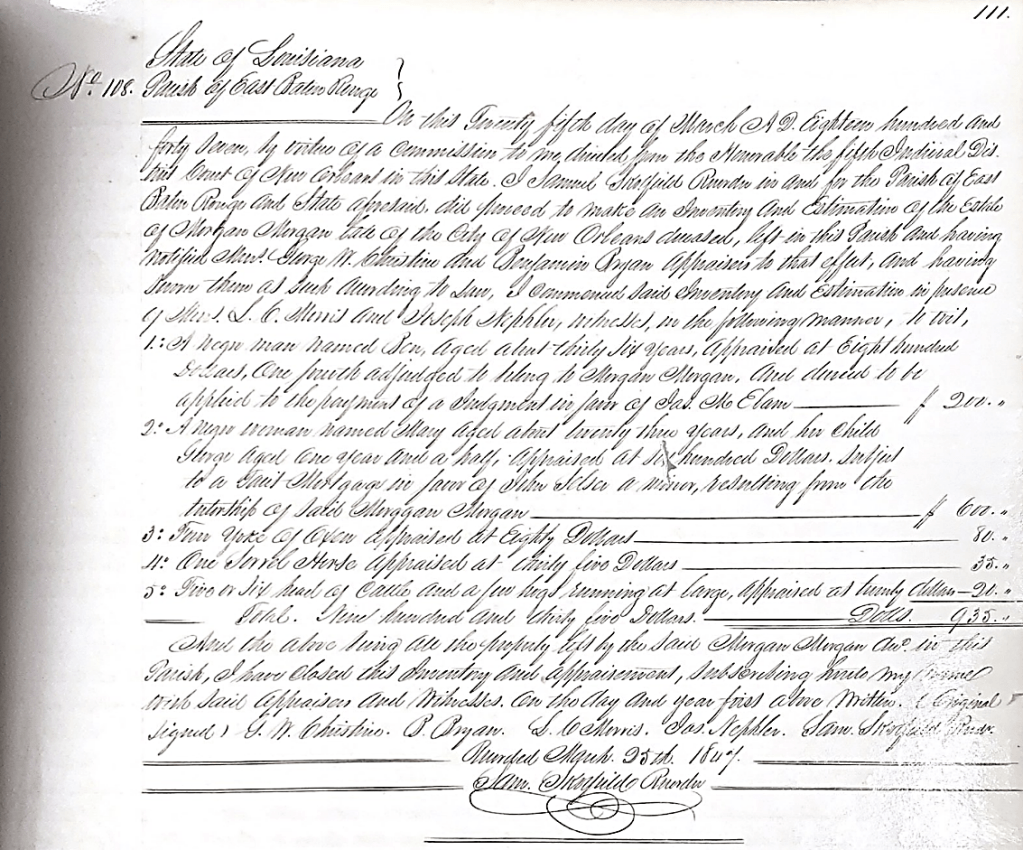 111.
State of Louisiana
No. 108. Parish of East Baton Rouge
On this Twenty fifth day of March A.D. Eighteen hundred and
forty Seven, by virtue of a Commission to me, directed from the Honorable the fifth Judicial Dis-
trict Court of New Orleans in this State. I Samuel Skolfield Recorder in and for the Parish of East
Baton Rouge and State aforesaid, did proceed to make an Inventory And Estimation of the Estate
of Morgan Morgan late of the City of New Orleans deceased, left in this Parish and having
notified Messrs. George W. Christine and Benjamin Bryan Appraisers to that effect, And having
Sworn them as Such According to Law, I commenced Said Inventory And Estimation in presence
of Messrs. L. C. Morris and Joseph Nephler, witnesses, in the following manner, to wit,
1: A negro man named Ben, Aged about thirty Six Years, Appraised at Eight hundred
Dollars, One fourth adjudged to belong to Morgan Morgan, And decreed to be
applied to the payment of a Judgment in favor of Jas. M Elam $ 200."
2: A negro woman named Mary Aged about twenty three Years, And her Child
George Aged One Year And a half, Appraised at Six hundred Dollars. Subject
to a Tacit Mortgage in favor of John a minor, resulting from the
tutorship of Said Morggan Morgan $ 600."
3: Four Yoke of Oxen Appraised at Eighty Dollars 80."
4: One Sorrel Horse Appraised at thirty five Dollars 35."
5: Five or Six head of Cattle and a few hogs running at large, Appraised at twenty dollars 20."
Total. Nine hundred and thirty five Dollars. Dolls. 935."
And the above being all the property left by the Said Morgan Morgan decd. in this
Parish, I have closed this Inventory And Appraisement, Subscribing hereto my name
with Said Appraisers And Witnesses. On the day and year first above Written. (Original
Signed) G. W. Christine. B. Bryan. L. C Morris. Jos. Nephler. Sam. Skolfield Recdr.
Recorded March 25th. 1847.
Sam. Skolfield Recorder